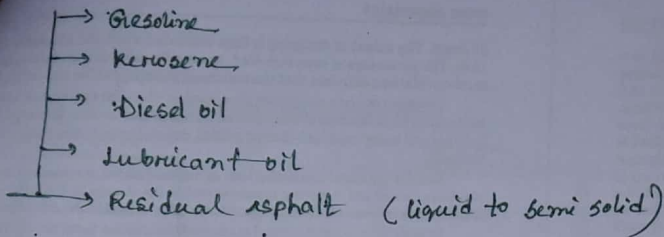 → Gasoline
→ Kerosene
→ Diesel oil
→ Lubricant oil
→ Residual asphalt (liquid to semi solid)